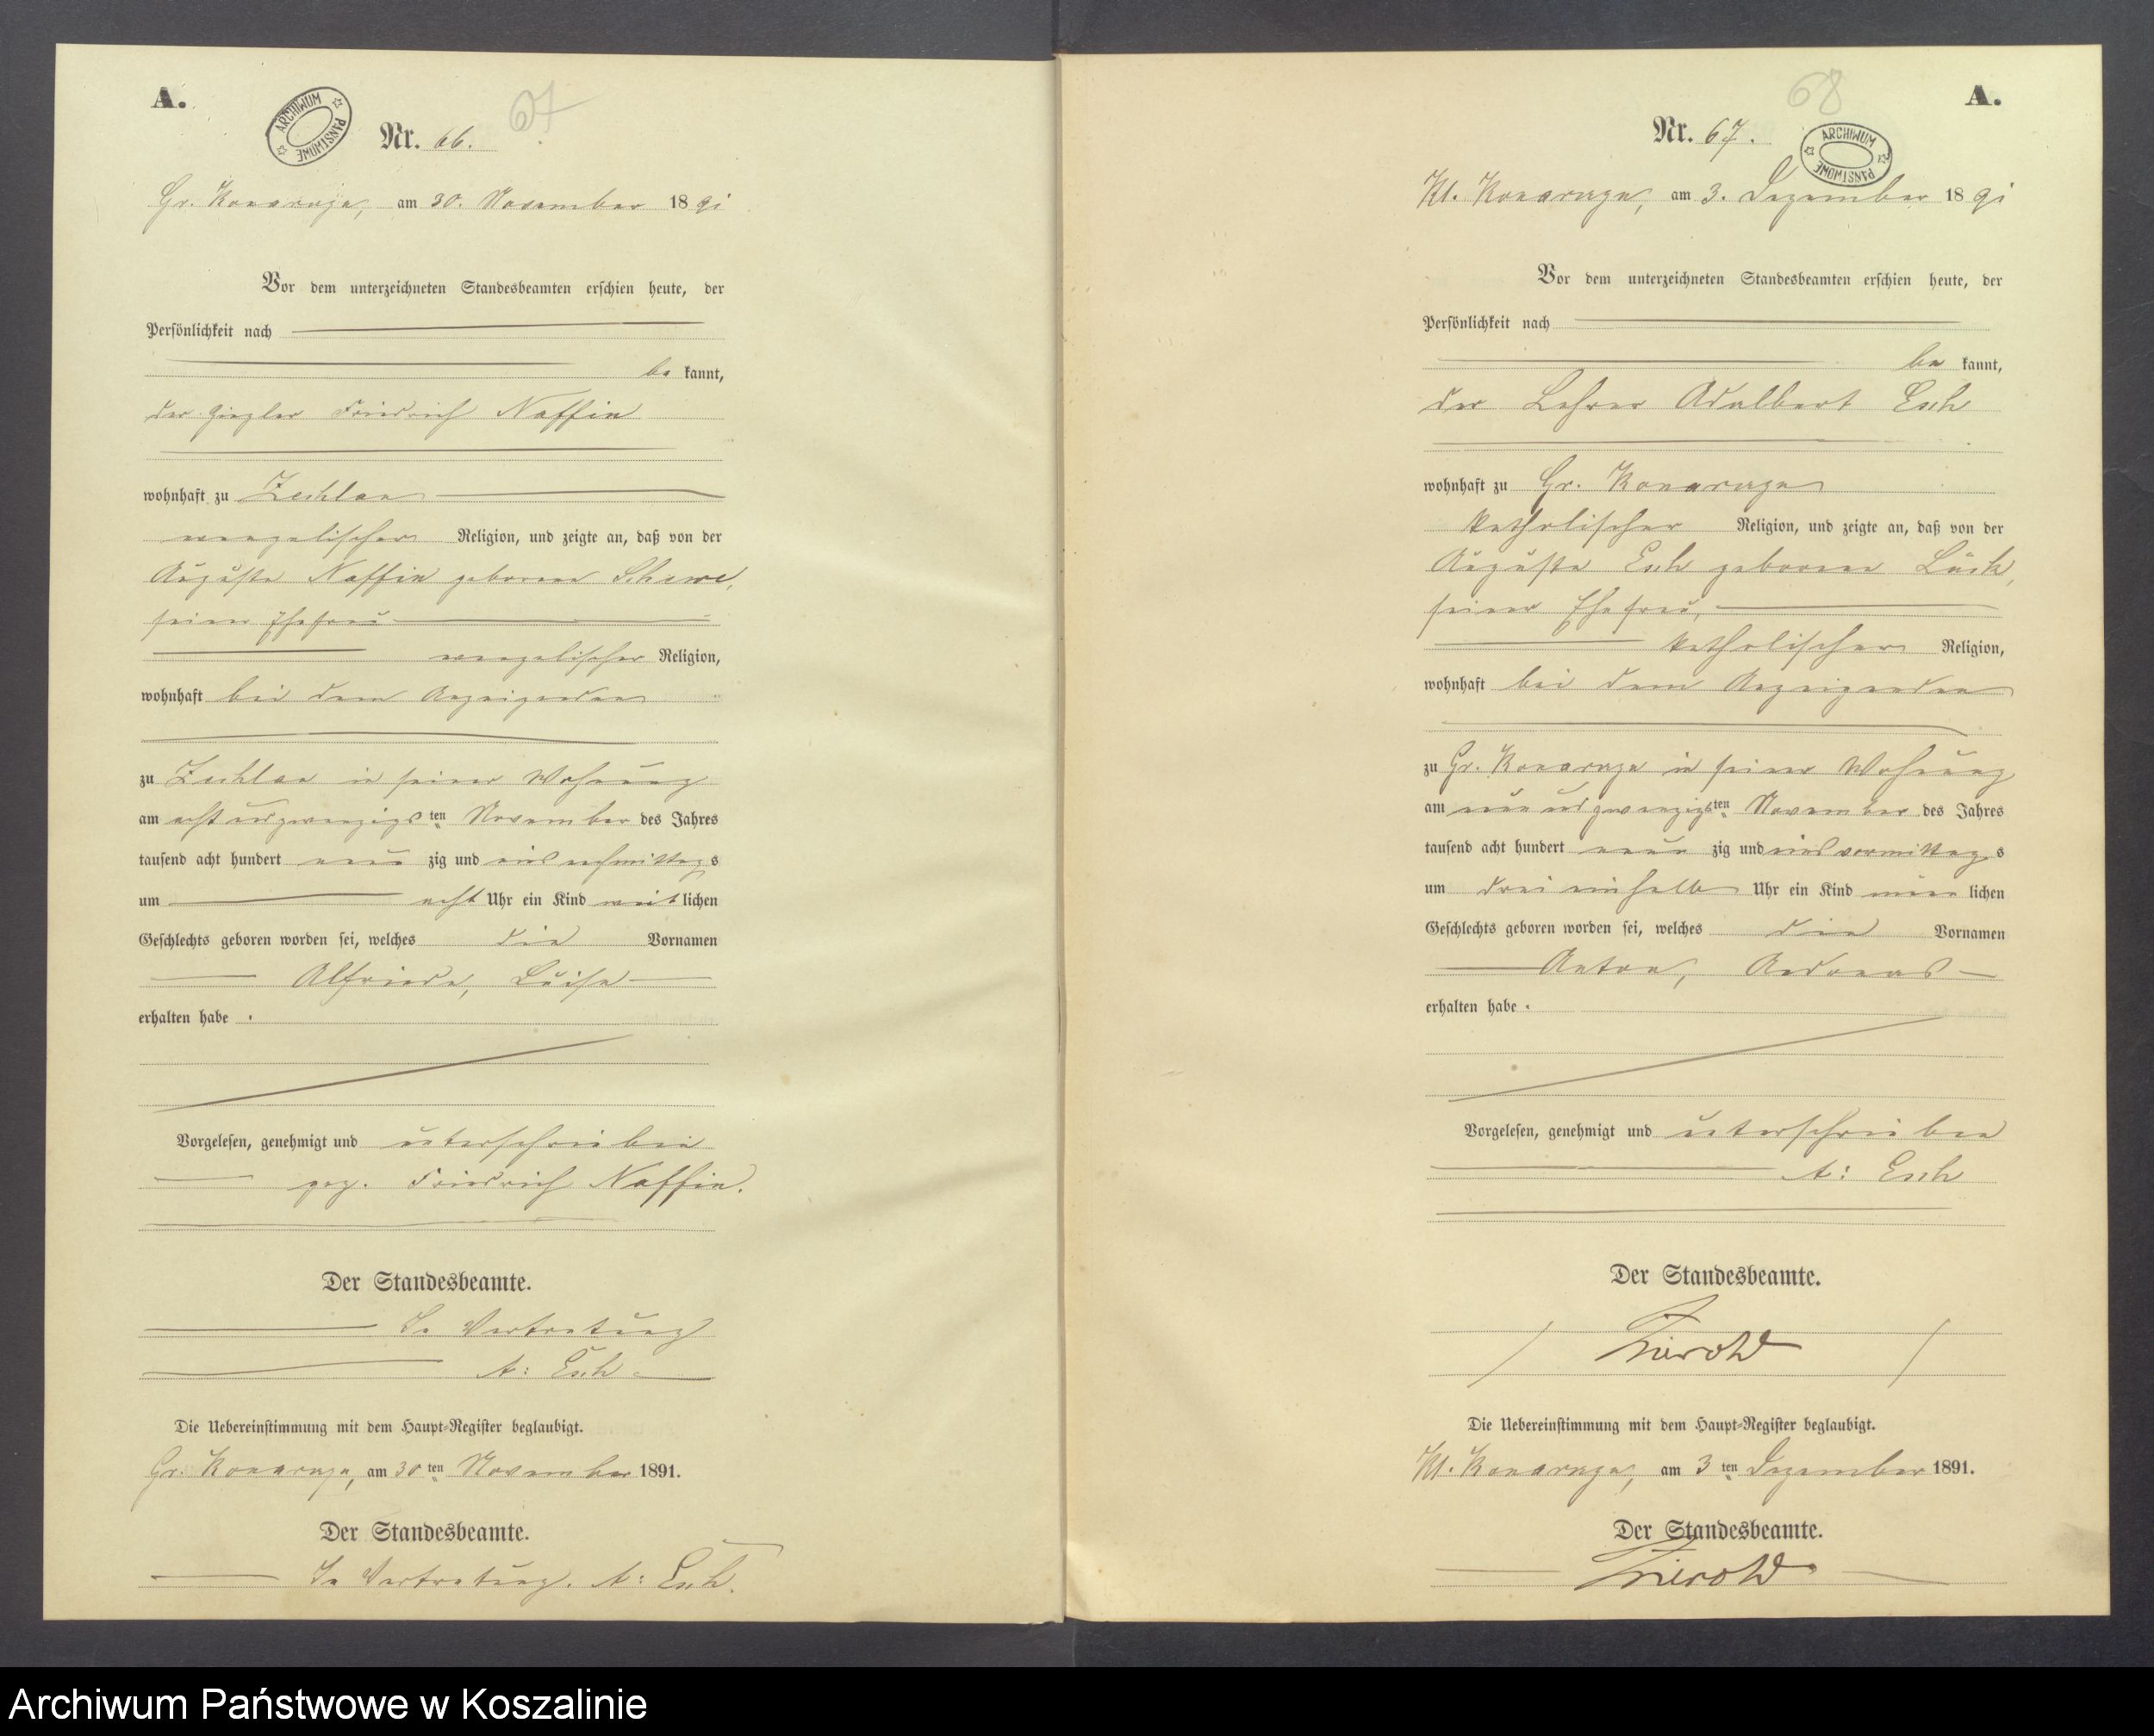 A.
ARCHIWUM PAŃSTWOWE
67
Nr. 66.
Gr. Konarzyn, am 30. November 1891
Vor dem unterzeichneten Standesbeamten erschien heute, der
Persönlichkeit nach
be kannt,
der Ziegler Friedrich Naffin
wohnhaft zu Zechlau
evangelischer Religion, und zeigte an, daß von der
Auguste Naffin geborene Schewe,
seiner Ehefrau
evangelischer Religion,
wohnhaft bei dem Anzeigenden
zu Zechlau in seiner Wohnung
am acht und zwanzigs ten November des Jahres
tausend acht hundert neun zig und eins nachmittags
um acht Uhr ein Kind weib lichen
Geschlechts geboren worden sei, welches die Vornamen
Alfriede, Luise
erhalten habe.
Vorgelesen, genehmigt und unterschrieben
gez. Friedrich Naffin.
Der Standesbeamte.
In Vertretung
A: Esch
Die Uebereinstimmung mit dem Haupt-Register beglaubigt.
Gr. Konarzyn, am 30 ten November 1891.
Der Standesbeamte.
In Vertretung. A: Esch.
68
A.
Nr. 67.
ARCHIWUM PAŃSTWOWE
Kl. Konarzyn, am 3. Dezember 1891
Vor dem unterzeichneten Standesbeamten erschien heute, der
Persönlichkeit nach
be kannt,
der Lehrer Adalbert Esch
wohnhaft zu Gr. Konarzyn
katholischer Religion, und zeigte an, daß von der
Auguste Esch geborene Lück,
seiner Ehefrau,
katholischer Religion,
wohnhaft bei dem Anzeigenden
zu Gr. Konarzyn in seiner Wohnung
am neun und zwanzigs ten November des Jahres
tausend acht hundert neun zig und eins vormittags
um drei ein halb Uhr ein Kind männ lichen
Geschlechts geboren worden sei, welches die Vornamen
Anton, Andreas
erhalten habe.
Vorgelesen, genehmigt und unterschrieben
A: Esch
Der Standesbeamte.
Die Uebereinstimmung mit dem Haupt-Register beglaubigt.
Kl. Konarzyn, am 3 ten Dezember 1891.
Der Standesbeamte.
Archiwum Państwowe w Koszalinie